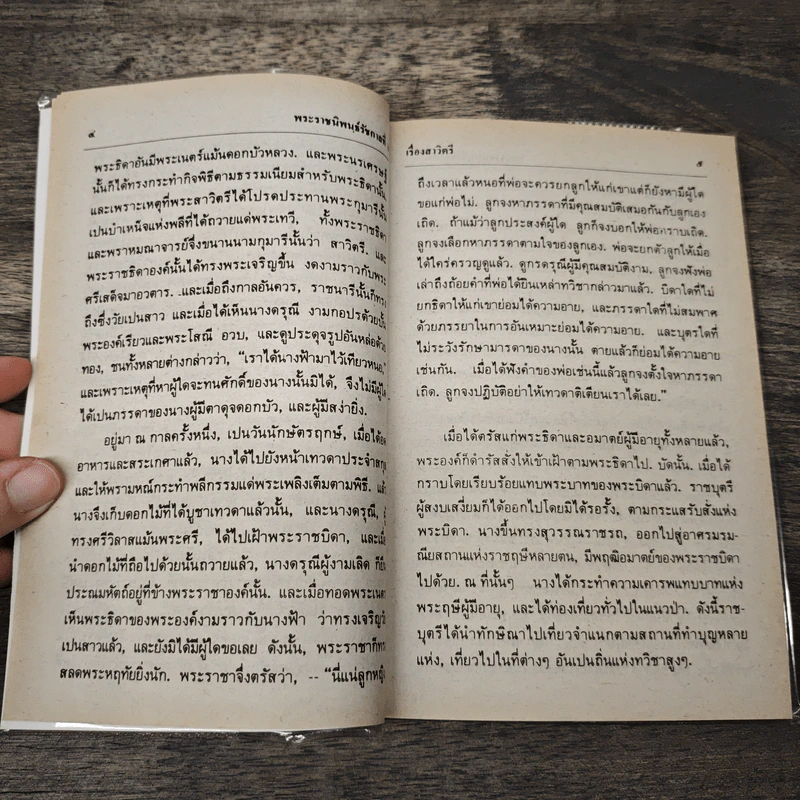 ๔ พระราชนิพนธ์รัชกาลที่
พระธิดาอันมีพระเนตร์แม้นดอกบัวหลวง. และพระนรเศรษฐ์
นั้นก็ได้ทรงกระทำกิจพิธีตามธรรมเนียมสำหรับพระธิดานั้น,
และเพราะเหตุที่พระสาวิตรีได้โปรดประทานพระกุมารีนั้น
เปนบำเหน็จแห่งพลีที่ได้ถวายแด่พระเทวี, ทั้งพระราชธิดา
และพราหมณาจารย์จึ่งขนานนามกุมารีนั้นว่า สาวิตรี. และ
พระราชธิดาองค์นั้นได้ทรงพระเจริญขึ้น งดงามราวกับพระ
ศรีเสด็จมาอวตาร. และเมื่อถึงกาลอันควร, ราชนารีนั้นก็ทรง
ถึงซึ่งวัยเปนสาว และเมื่อได้เห็นนางดรุณี งามกอปรด้วยบั้น
พระองค์เรียวและพระโสณี อวบ, และดูประดุจรูปอันหล่อด้วย
ทอง, ชนทั้งหลายต่างกล่าวว่า, “เราได้นางฟ้ามาไว้เทียวหนอ.”
และเพราะเหตุที่หาผู้ใดจะทนศักดิ์ของนางนั้นมิได้, จึงไม่มีผู้
ได้เปนภรรดาของนางผู้มีตาดุจดอกบัว, และผู้มีสง่ายิ่ง.
อยู่มา ณ กาลครั้งหนึ่ง, เปนวันนักษัตรฤกษ์, เมื่อได้
อาหารและสระเกศาแล้ว, นางได้ไปยังหน้าเทวดาประจำสกุล
และให้พราหมณ์กระทำพลีกรรมแด่พระเพลิงเต็มตามพิธี. แล้ว
นางจึงเก็บดอกไม้ที่ได้บูชาเทวดาแล้วนั้น, และนางดรุณี, ผู้
ทรงศรีวิลาสแม้นพระศรี, ได้ไปเฝ้าพระราชบิดา, และเมื่อ
นำดอกไม้ที่ถือไปด้วยนั้นถวายแล้ว, นางดรุณีผู้งามเลิด ก็ยืน
ประณมหัดถ์อยู่ที่ข้างพระราชาองค์นั้น. และเมื่อทอดพระเนตร
เห็นพระธิดาของพระองค์งามราวกับนางฟ้า ว่าทรงเจริญวัย
เปนสาวแล้ว, และยังมิได้มีผู้ใดขอเลย ดังนั้น, พระราชาก็ทรง
สลดพระหฤทัยยิ่งนัก. พระราชาจึ่งตรัสว่า, -- “นี่แน่ลูกหญิง
เรื่องสาวิตรี ๕
ถึงเวลาแล้วหนอที่พ่อจะควรยกลูกให้แก่เขาแต่ก็ยังหามีผู้ใด
ขอแก่พ่อไม่. ลูกจงหาภรรดาที่มีคุณสมบัติเสมอกันกับลูกเอง
เถิด. ถ้าแม้ว่าลูกประสงค์ผู้ใด ลูกก็จงบอกให้พ่อทราบเถิด.
ลูกจงเลือกหาภรรดาตามใจของลูกเอง. พ่อจะยกตัวลูกให้เมื่อ
ได้ใคร่ครวญดูแล้ว. ดูกรดรุณีผู้มีคุณสมบัติงาม, ลูกจงฟังพ่อ
เล่าถึงถ้อยคำที่พ่อได้ยินเหล่าทวิชากล่าวมาแล้ว. บิดาใดที่ไม่
ยกธิดาให้แก่เขาย่อมได้ความอาย, และภรรดาใดที่ไม่สมพาศ
ด้วยภรรยาในการอันเหมาะย่อมได้ความอาย. และบุตรใดที่
ไม่ระวังรักษามารดาของนางนั้น ตายแล้วก็ย่อมได้ความอาย
เช่นกัน. เมื่อได้ฟังคำของพ่อเช่นนี้แล้วลูกจงตั้งใจหาภรรดา
เถิด. ลูกจงปฏิบัติอย่าให้เทวดาติเตียนเราได้เลย.”
เมื่อได้ตรัสแก่พระธิดาและอมาตย์ผู้มีอายุทั้งหลายแล้ว,
พระองค์ก็ดำรัสสั่งให้เข้าเฝ้าตามพระธิดาไป. บัดนั้น. เมื่อได้
กราบโดยเรียบร้อยแทบพระบาทของพระบิดาแล้ว. ราชบุตรี
ผู้สงบเสงี่ยมก็ได้ออกไปโดยมิได้รอรั้ง, ตามกระแสรับสั่งแห่ง
พระบิดา. นางขึ้นทรงสุวรรณราชรถ, ออกไปสู่อาศรมรม-
ณียสถานแห่งราชฤษีหลายตน, มีพฤฒิอมาตย์ของพระราชบิดา
ไปด้วย. ณ ที่นั้นๆ นางได้กระทำความเคารพแทบบาทแห่ง
พระฤษีผู้มีอายุ, และได้ท่องเที่ยวทั่วไปในแนวป่า. ดังนี้ราช-
บุตรีได้นำทักษิณาไปเที่ยวจำแนกตามสถานที่ทำบุญหลาย
แห่ง, เที่ยวไปในที่ต่างๆ อันเปนถิ่นแห่งทวิชาสูงๆ.